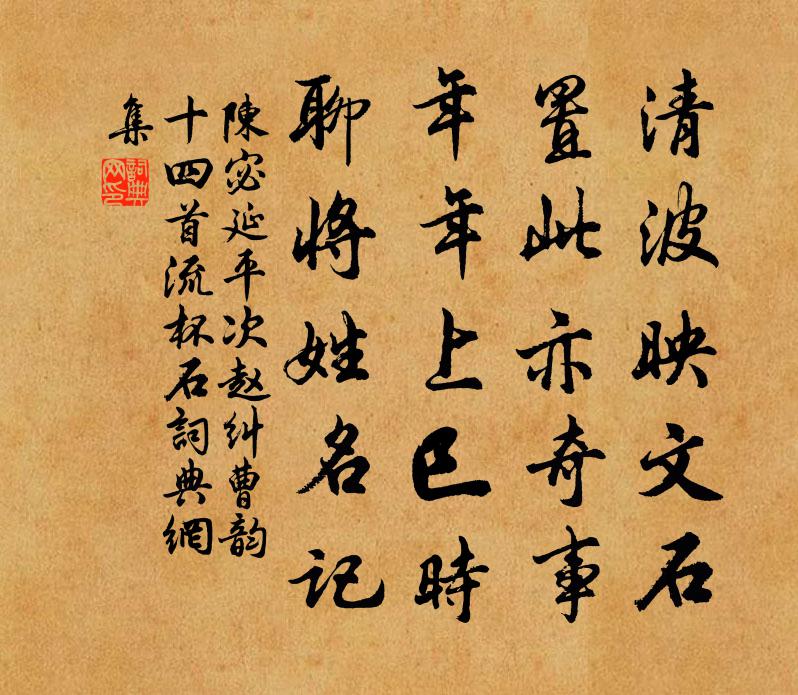 清波映文石
置此亦奇事
年年上巳時
聊將姓名記
陳宓延平次趙糾曹韵
十四首流杯石詞典網
集
詞典網印